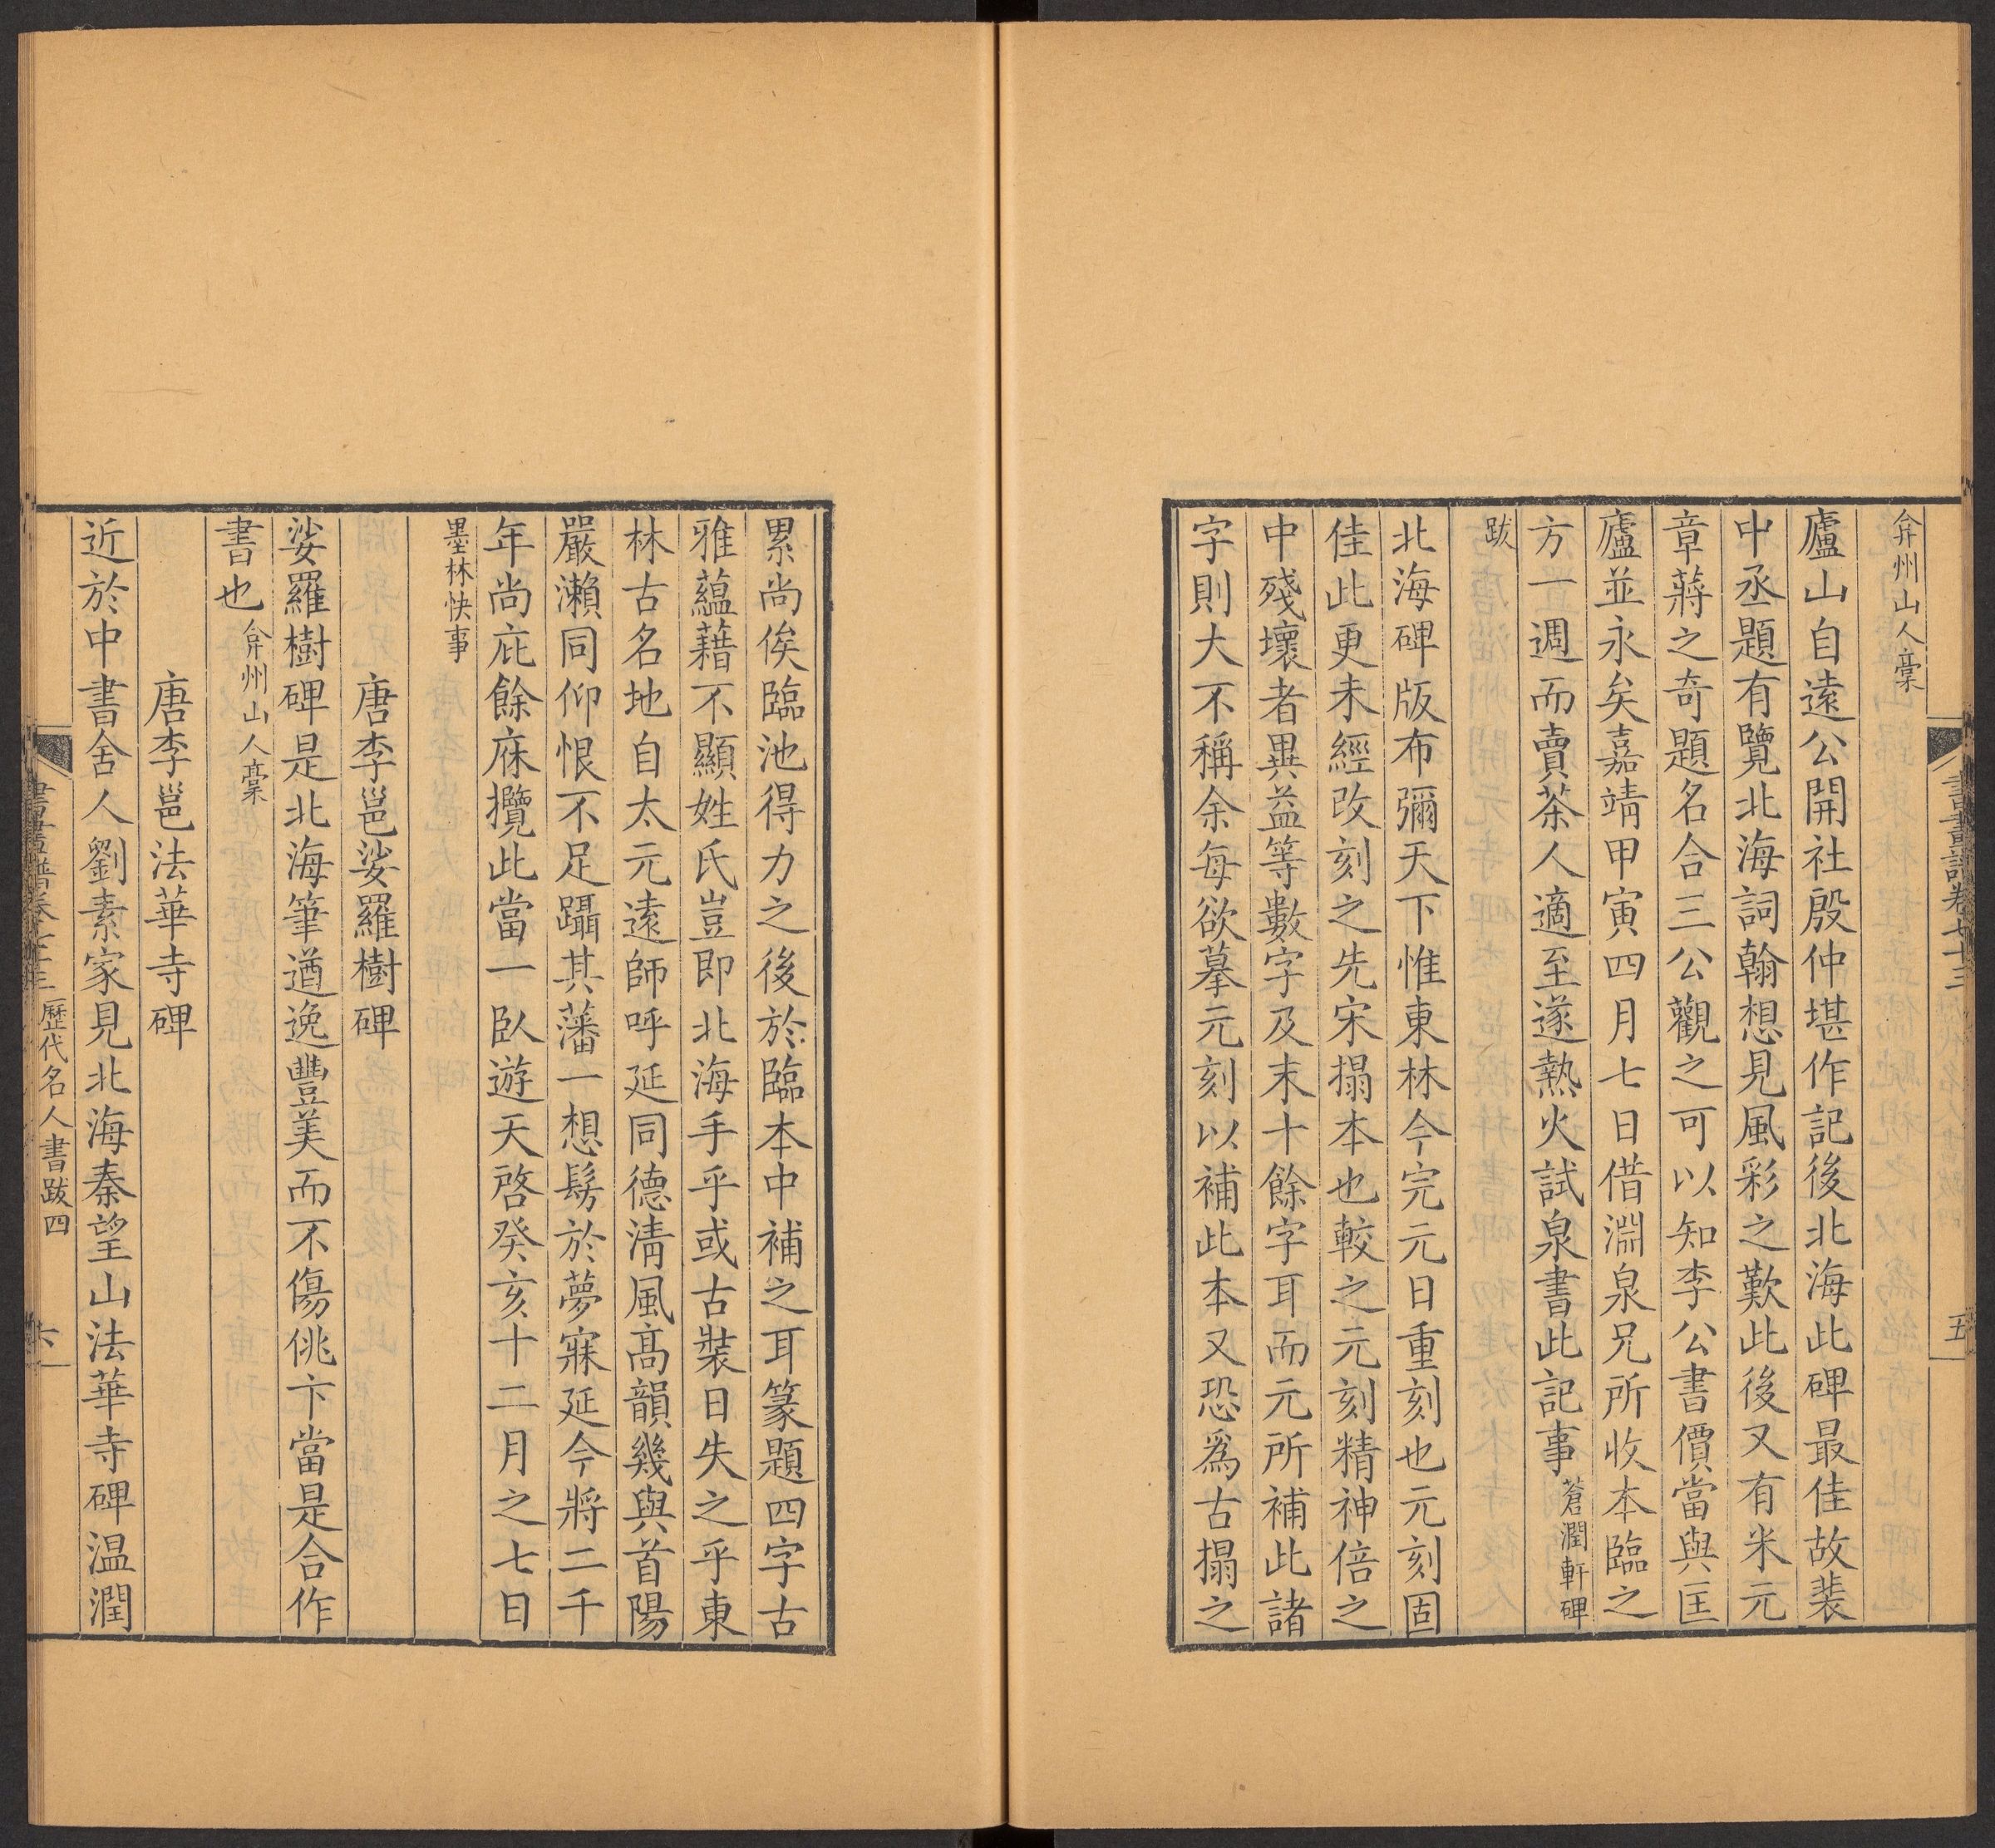 弇州山人稾
廬山自遠公開社殷仲堪作記後北海此碑最佳故裴
中丞題有覽北海詞翰想見風彩之歎此後又有米元
章蔣之奇題名合三公觀之可以知李公書價當與匡
廬並永矣嘉靖甲寅四月七日借淵泉兄所收本臨之
方一週而賣茶人適至遂熱火試泉書此記事蒼潤軒碑
跋
北海碑版布彌天下惟東林今完元日重刻也元刻固
佳此更未經改刻之先宋搨本也較之元刻精神倍之
中殘壞者異益等數字及末十餘字耳而元所補此諸
字則大不稱余每欲摹元刻以補此本又恐爲古搨之
書畫譜卷七十三
五
累尚俟臨池得力之後於臨本中補之耳篆題四字古
雅蘊藉不顯姓氏豈即北海手乎或古裝日失之乎東
林古名地自太元遠師呼延同德清風高韻幾與首陽
嚴瀨同仰恨不足躡其藩一想髣於夢寐延今將二千
年尚庇餘庥攬此當一臥遊天啓癸亥十二月之七日
墨林快事
唐李邕娑羅樹碑
娑羅樹碑是北海筆遒逸豐美而不傷佻卞當是合作
書也弇州山人稾
唐李邕法華寺碑
近於中書舍人劉素家見北海秦望山法華寺碑温潤
書畫譜卷七十三 歷代名人書跋四
六